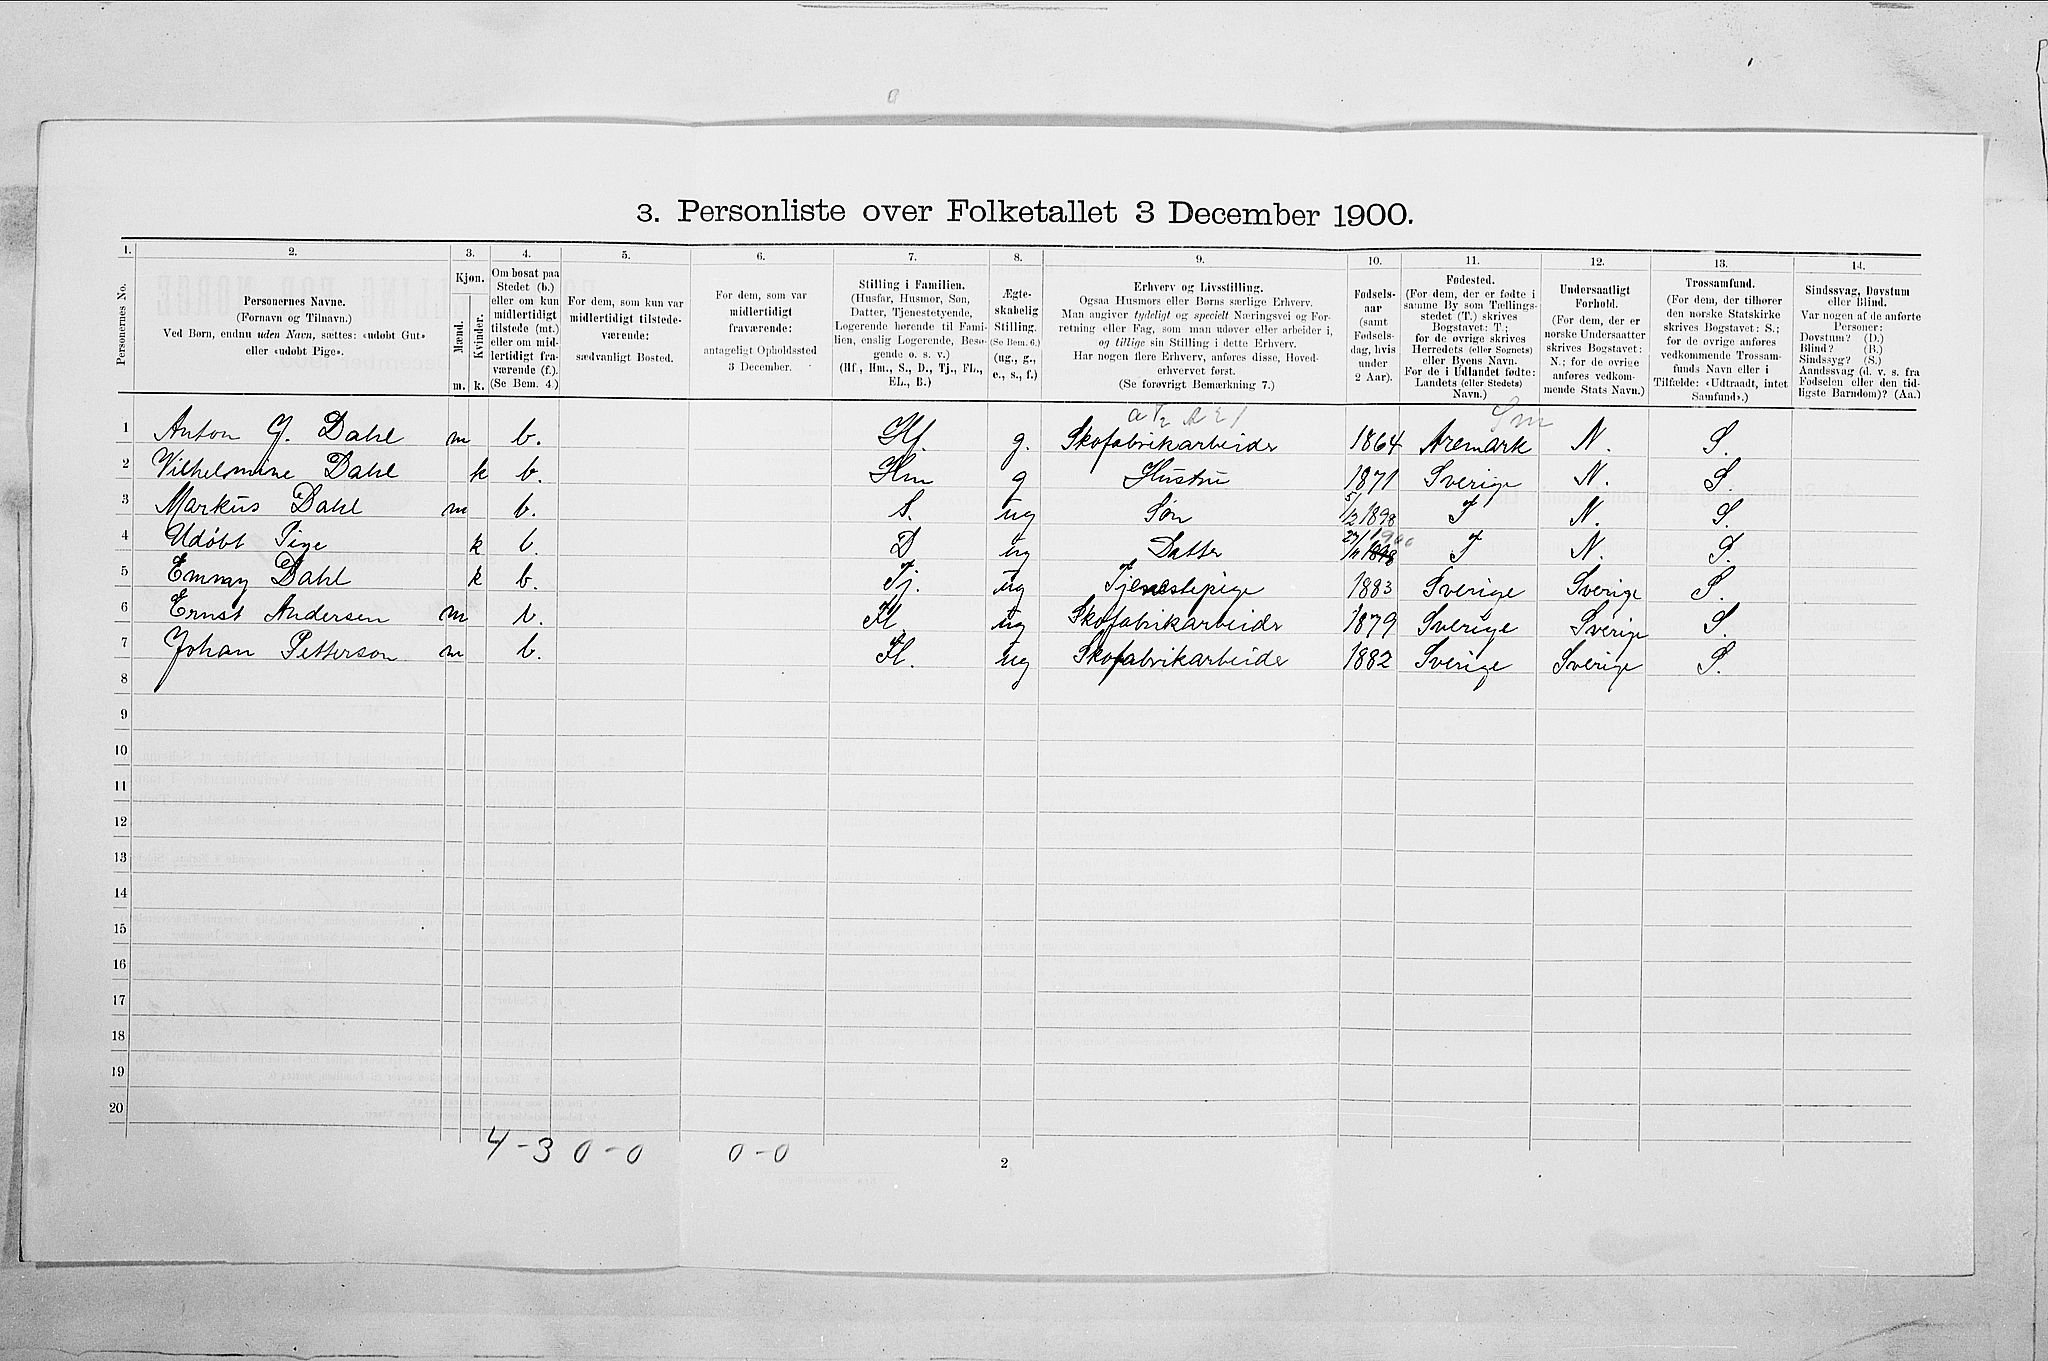 3. Personliste over Folketallet 3 December 1900.
1. 2. 3. 4. 5. 6. 7. 8. 9. 10. 11. 12. 13. 14.
Personernes No.
Personernes Navne.
(Fornavn og Tilnavn.)
Ved Børn, endnu uden Navn, sættes: «udøbt Gut»
eller «udøbt Pige».
Kjøn.
Mænd.
Kvinder.
m. k.
Om bosat paa
Stedet (b.)
eller om kun
midlertidigt
tilstede (mt.)
eller om mid-
lertidigt fra-
værende (f.).
(Se Bem. 4.)
For dem, som kun var
midlertidigt tilstede-
værende:
sædvanligt Bosted.
For dem, som var
midlertidigt
fraværende:
antageligt Opholdssted
3 December.
Stilling i Familien.
(Husfar, Husmor, Søn,
Datter, Tjenestetyende,
Logerende hørende til Fami-
lien, enslig Logerende, Besø-
gende o. s. v.)
(Hf., Hm., S., D., Tj., FL.,
EL., B.)
Ægte-
skabelig
Stilling.
(Se Bem. 6.)
(ug., g.,
e., s., f.)
Erhverv og Livsstilling.
Ogsaa Husmors eller Børns særlige Erhverv.
Man angiver tydeligt og specielt Næringsvei og For-
retning eller Fag, som man udøver eller arbeider i,
og tillige sin Stilling i dette Erhverv.
Har nogen flere Erhverv, anføres disse, Hoved-
erhvervet først.
(Se forøvrigt Bemærkning 7.)
Fødsels-
aar
(samt
Fødsels-
dag, hvis
under
2 Aar).
Fødested.
(For dem, der er fødte i
samme By som Tællings-
stedet (T.) skrives
Bogstavet: T.;
for de øvrige skrives
Herredets (eller Sognets)
eller Byens Navn.
For de i Udlandet fødte:
Landets (eller Stedets)
Navn.)
Undersaatligt
Forhold.
(For dem, der er
norske Undersaatter
skrives Bogstavet:
N.; for de øvrige
anføres vedkom-
mende Stats Navn.)
Trossamfund.
(For dem, der tilhører
den norske Statskirke
skrives Bogstavet: S.;
for de øvrige anføres
vedkommende Trossam-
funds Navn eller i
Tilfælde: «Udtraadt, intet
Samfund».)
Sindssvag, Døvstum
eller Blind.
Var nogen af de anførte
Personer:
Døvstum? (D.)
Blind? (B.)
Sindssyg? (S.)
Aandssvag (d. v. s. fra
Fødselen eller den tid-
ligste Barndom)? (Aa.)
1 Anton G. Dahl m b. Hf. g. Skofabrikarbeider 1864 Aremark N. S.
2 Vilhelmine Dahl k b. Hm g Hustru 1871 Sverige N. S.
3 Markus Dahl m b. S. ug Søn 5/12 1898 T N. S.
4 Udøbt Pige k b. D ug Datter 27/11 1898 1900 T N. S.
5 Emmy Dahl k b. Tj. ug Tjenestepige 1883 Sverige Sverige S.
6 Ernst Andersen m b. Fl. ug Skofabrikarbeider 1879 Sverige Sverige S.
7 Johan Petterson m b. Fl. ug Skofabrikarbeider 1882 Sverige Sverige S.
8
9
10
11
12
13
14
15
16
17
18
19
20
4-3 0-0 0-0
2